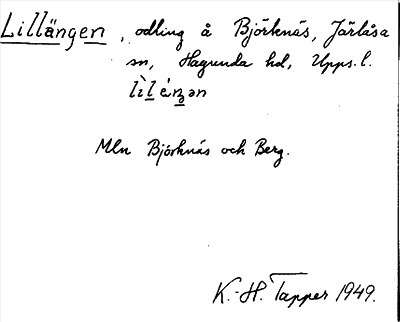 Lillängen, odling å Björknäs, Järlåsa
sn, Hagunda hd, Upps. l.
Mln Björknäs och Berg.
K.-H. Tapper 1949.